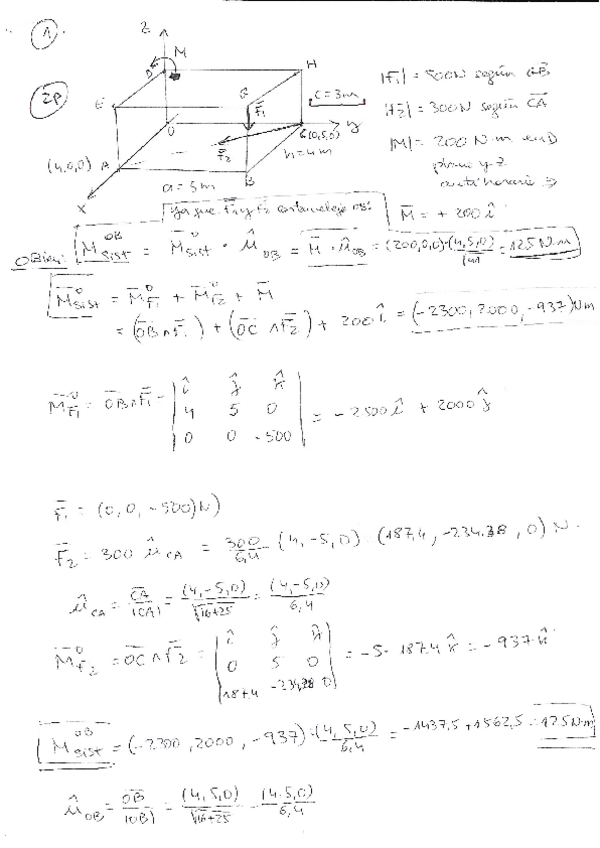 1
2P
Z
M
D
H
E
G
F̄1
C=3m
O
y
C(0,5,0)
F̄2
h=4m
(4,0,0) A
B
a=5m
X
|F̄1| = 500N según GB
|F̄2| = 300N según CA
|M| = 200 N·m en D
plano yz
antihorario
M̄ = +200 î
ya que F̄1 y F̄2 cortan eje OB.
O Bien: M̄sist^OB = M̄sist^O · û_OB = M̄ · û_OB = (200,0,0)·(4,5,0)/√41 = 125 N·m
M̄sist^O = M̄F̄1^O + M̄F̄2^O + M̄
= (OB ∧ F̄1) + (OC ∧ F̄2) + 200 î = (-2300, 2000, -937) Nm
M̄F̄1^O = OB ∧ F̄1 = | î ĵ k̂ | 4 5 0 | 0 0 -500 | = -2500 î + 2000 ĵ
F̄1 = (0, 0, -500) N)
F̄2 = 300 û_CA = 300/6,4 (4, -5, 0) = (187,4, -234.38, 0) N.
û_CA = CA/|CA| = (4,-5,0)/√16+25 = (4,-5,0)/6,4
M̄F̄2^O = OC ∧ F̄2 = | î ĵ k̂ | 0 5 0 | 187.4 -234,38 0 | = -5· 187.4 k̂ = -937 k̂
M̄sist^OB = (-2300, 2000, -937)·(4,5,0)/6,4 = -1437,5 + 1562,5 = 125 N·m
û_OB = OB/|OB| = (4,5,0)/√16+25 = (4.5,0)/6,4